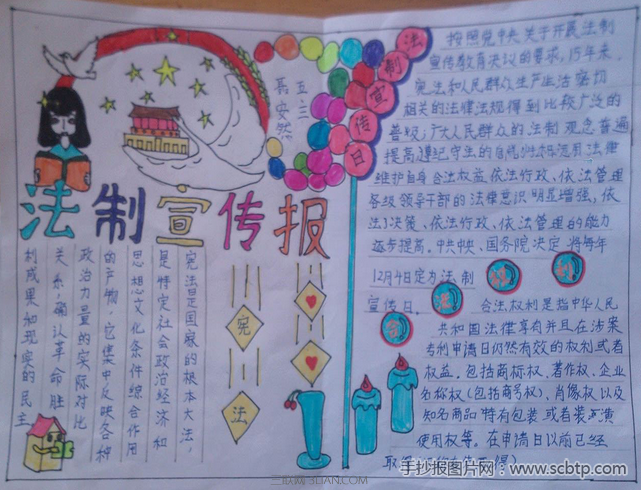 法制宣传报
五三
長安然
法制宣传日
按照党中央关于开展法制
宣传教育决议的要求，15年来，
宪法和人民群众生产生活密切
相关的法律法规得到比较广泛的
普及，广大人民群众的法制观念普遍
提高遵纪守法的自觉性和运用法律
维护自身合法权益、依法行政、依法管理
各级领导干部的法律意识明显增强，依
法决策、依法行政、依法管理的能力
逐步提高。中共中央、国务院决定将每年
12月4日定为法制
宣传日。
合法权利
合法权利是指中华人民
共和国法律享有并且在涉案
专利申请日仍然有效的权利或者
权益。包括商标权、著作权、企业
名称权（包括商号权）、肖像权以及
知名商品特有包装或者装潢
使用权等。在申请日以前已经
取得
宪法是国家的根本大法，
是特定社会政治经济和
思想文化条件综合作用
的产物，它集中反映各种
政治力量的实际对比
关系，确认革命胜
利成果和现实的民主
宪
法
手抄报图片网：www.scbtp.com
三联网 3LIAN.COM